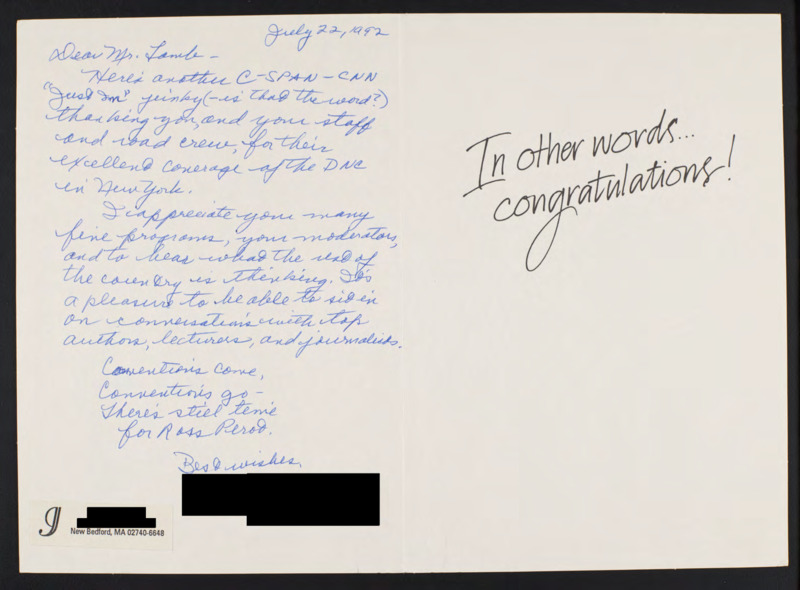 July 22, 1992
Dear Mr. Lamb -
Here's another C-SPAN - CNN
"Just In" junky (- is that the word?)
thanking you, and your staff
and road crew, for their
excellent coverage of the DNC
in New York.
I appreciate your many
fine programs, your moderators,
and to hear what the rest of
the country is thinking. It's
a pleasure to be able to sit in
on conversations with top
authors, lecturers, and journalists.
Conventions come,
Conventions go -
There's still time
for Ross Perot.
Best wishes,
J
New Bedford, MA 02740-6648
In other words...
congratulations!